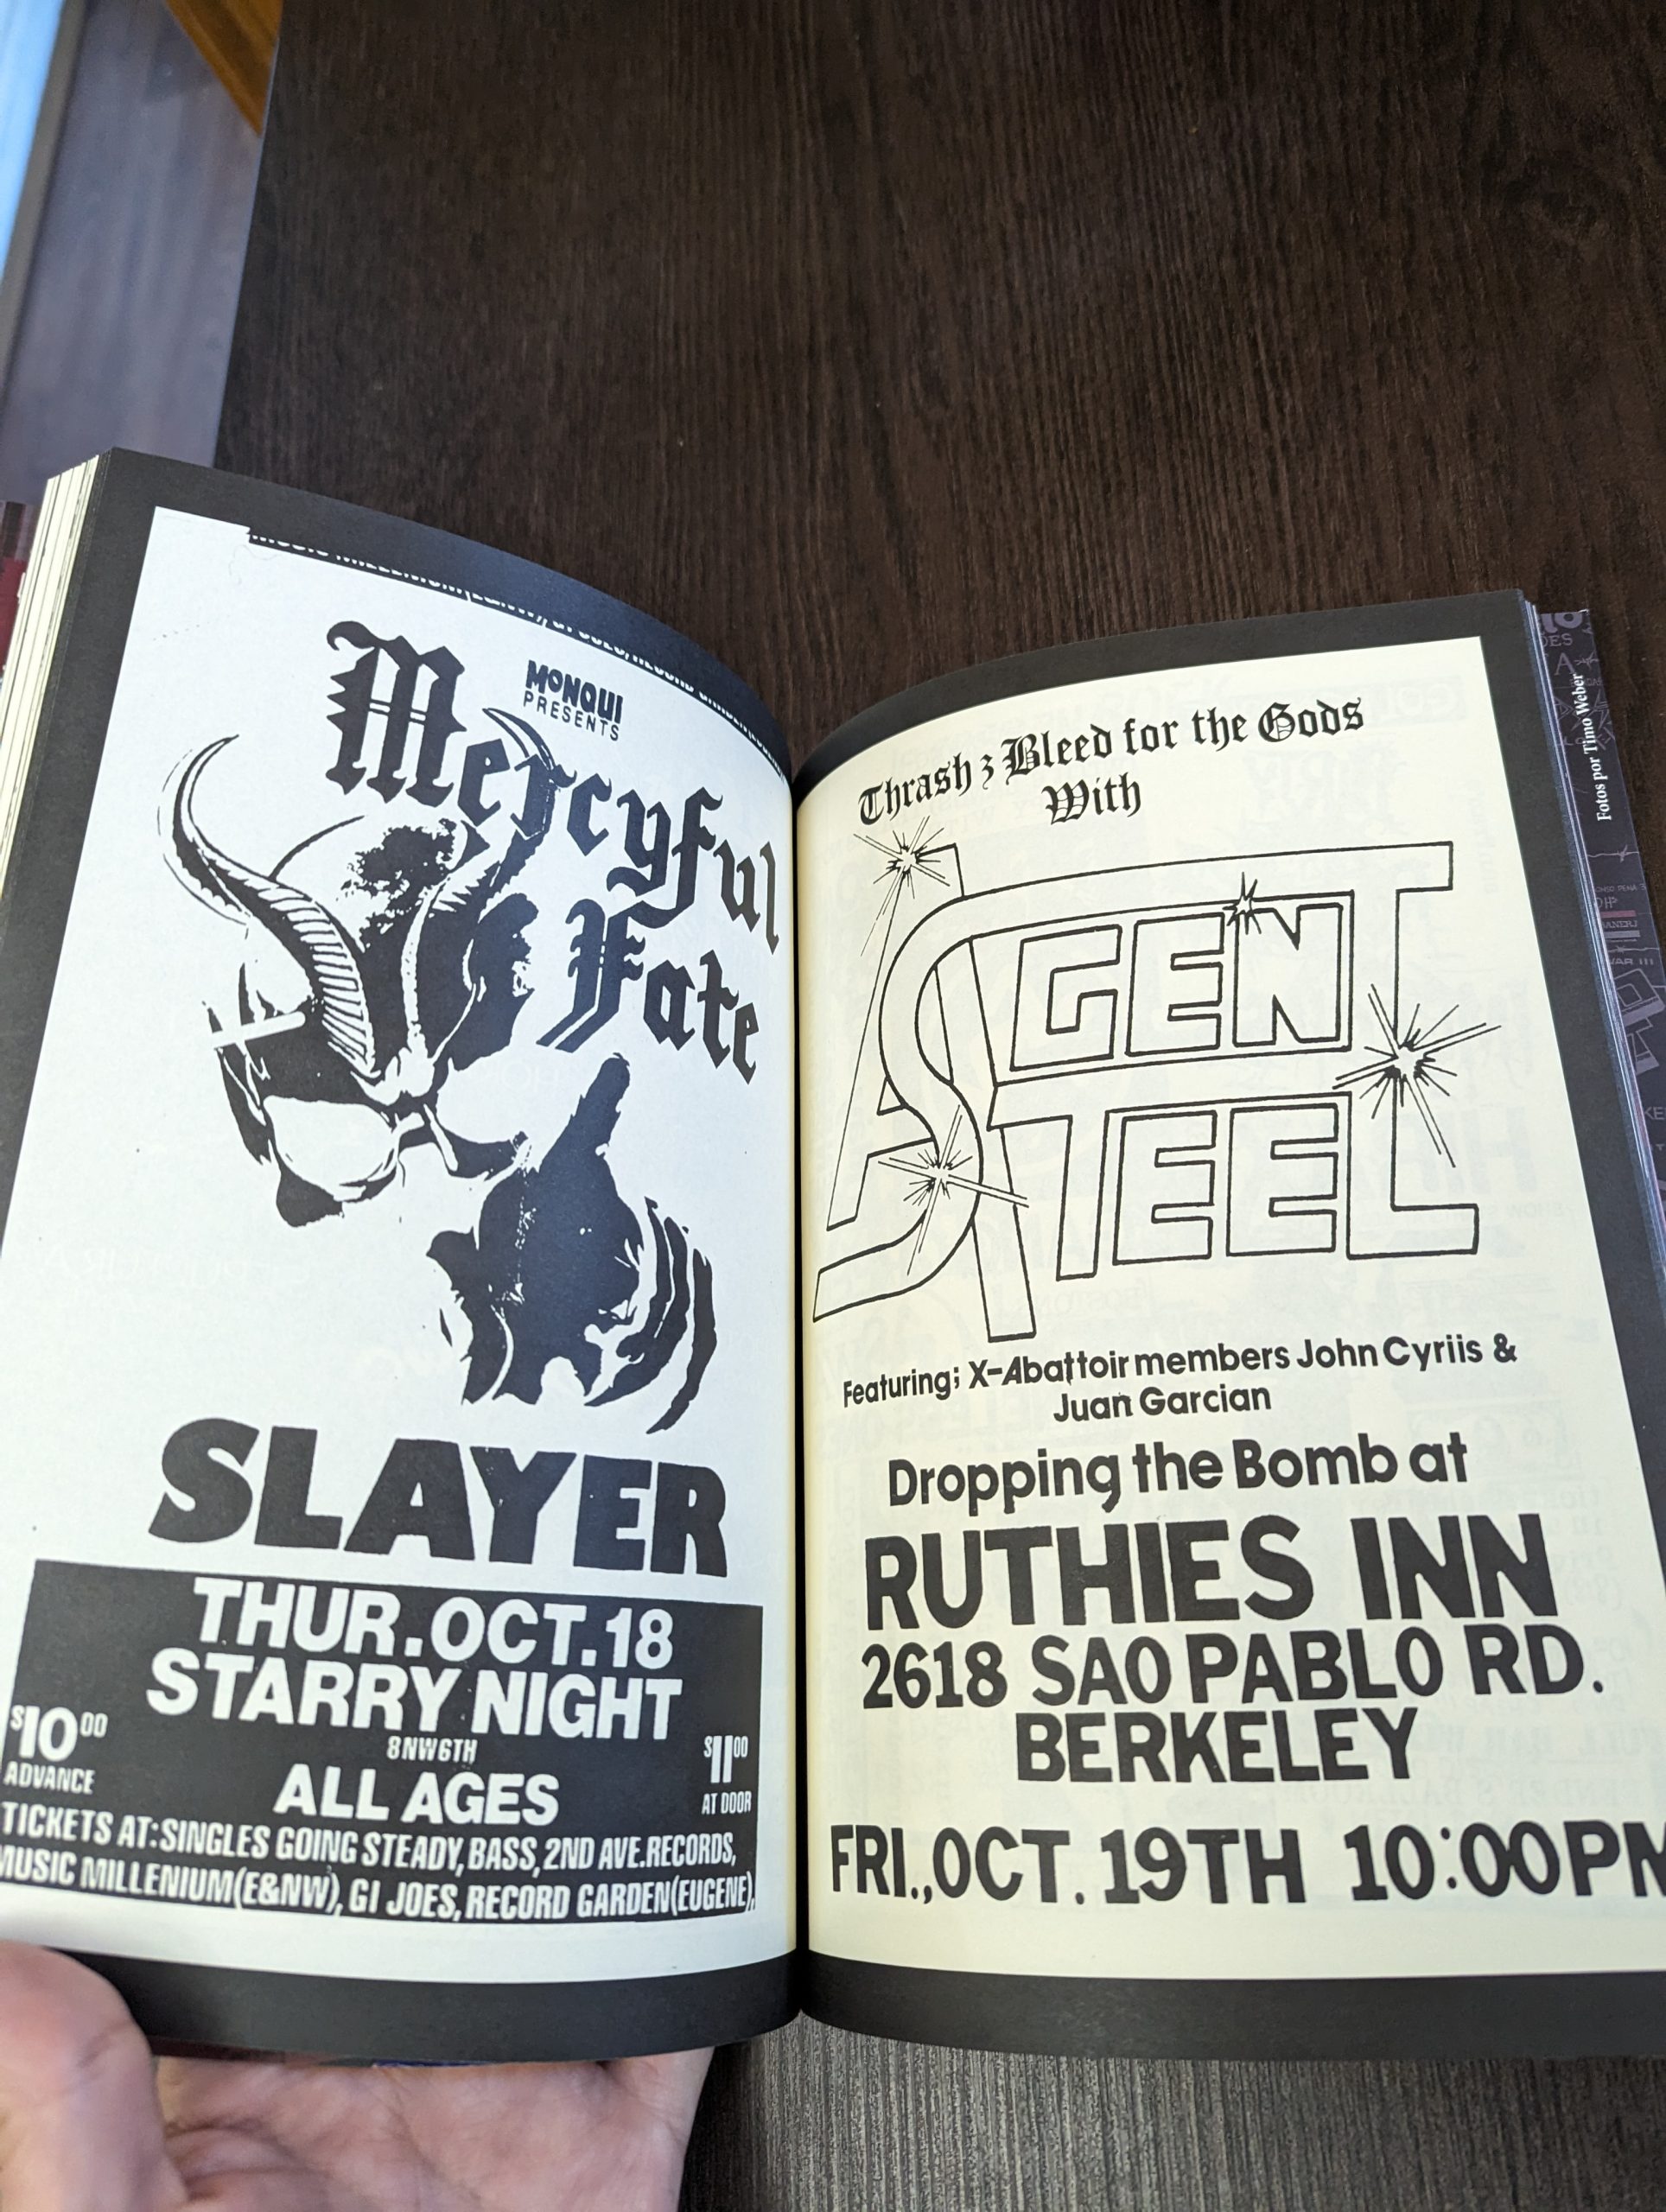 MONQUI
PRESENTS
Mercyful
Fate
SLAYER
THUR.OCT.18
STARRY NIGHT
8NW6TH
$10 00
ADVANCE
ALL AGES
$11 00
AT DOOR
TICKETS AT:SINGLES GOING STEADY, BASS, 2ND AVE.RECORDS,
MUSIC MILLENIUM(E&NW), GI JOES, RECORD GARDEN(EUGENE),
Thrash z Bleed for the Gods
With
AGENT
STEEL
Featuring; X-Abattoir members John Cyriis &
Juan Garcian
Dropping the Bomb at
RUTHIES INN
2618 SAO PABLO RD.
BERKELEY
FRI.,OCT. 19TH 10:00PM
Fotos por Timo Weber